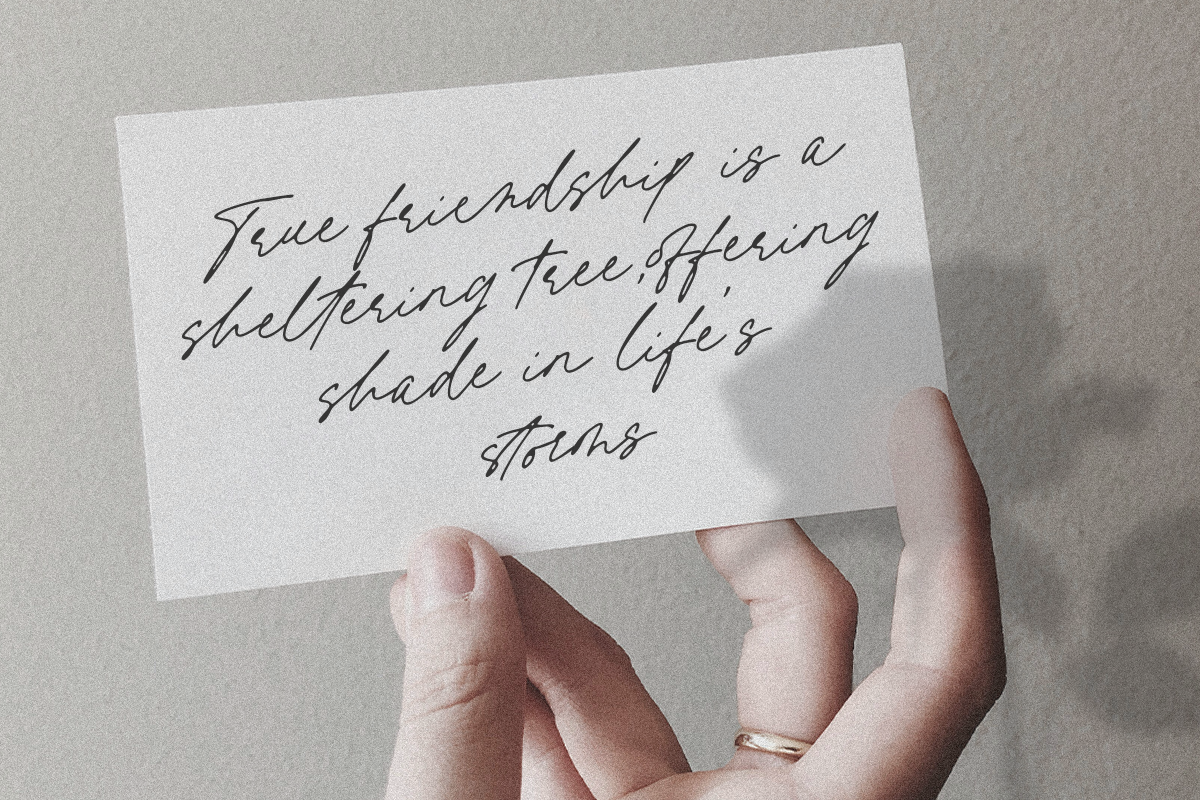 True friendship is a
sheltering tree, offering
shade in life's
storms